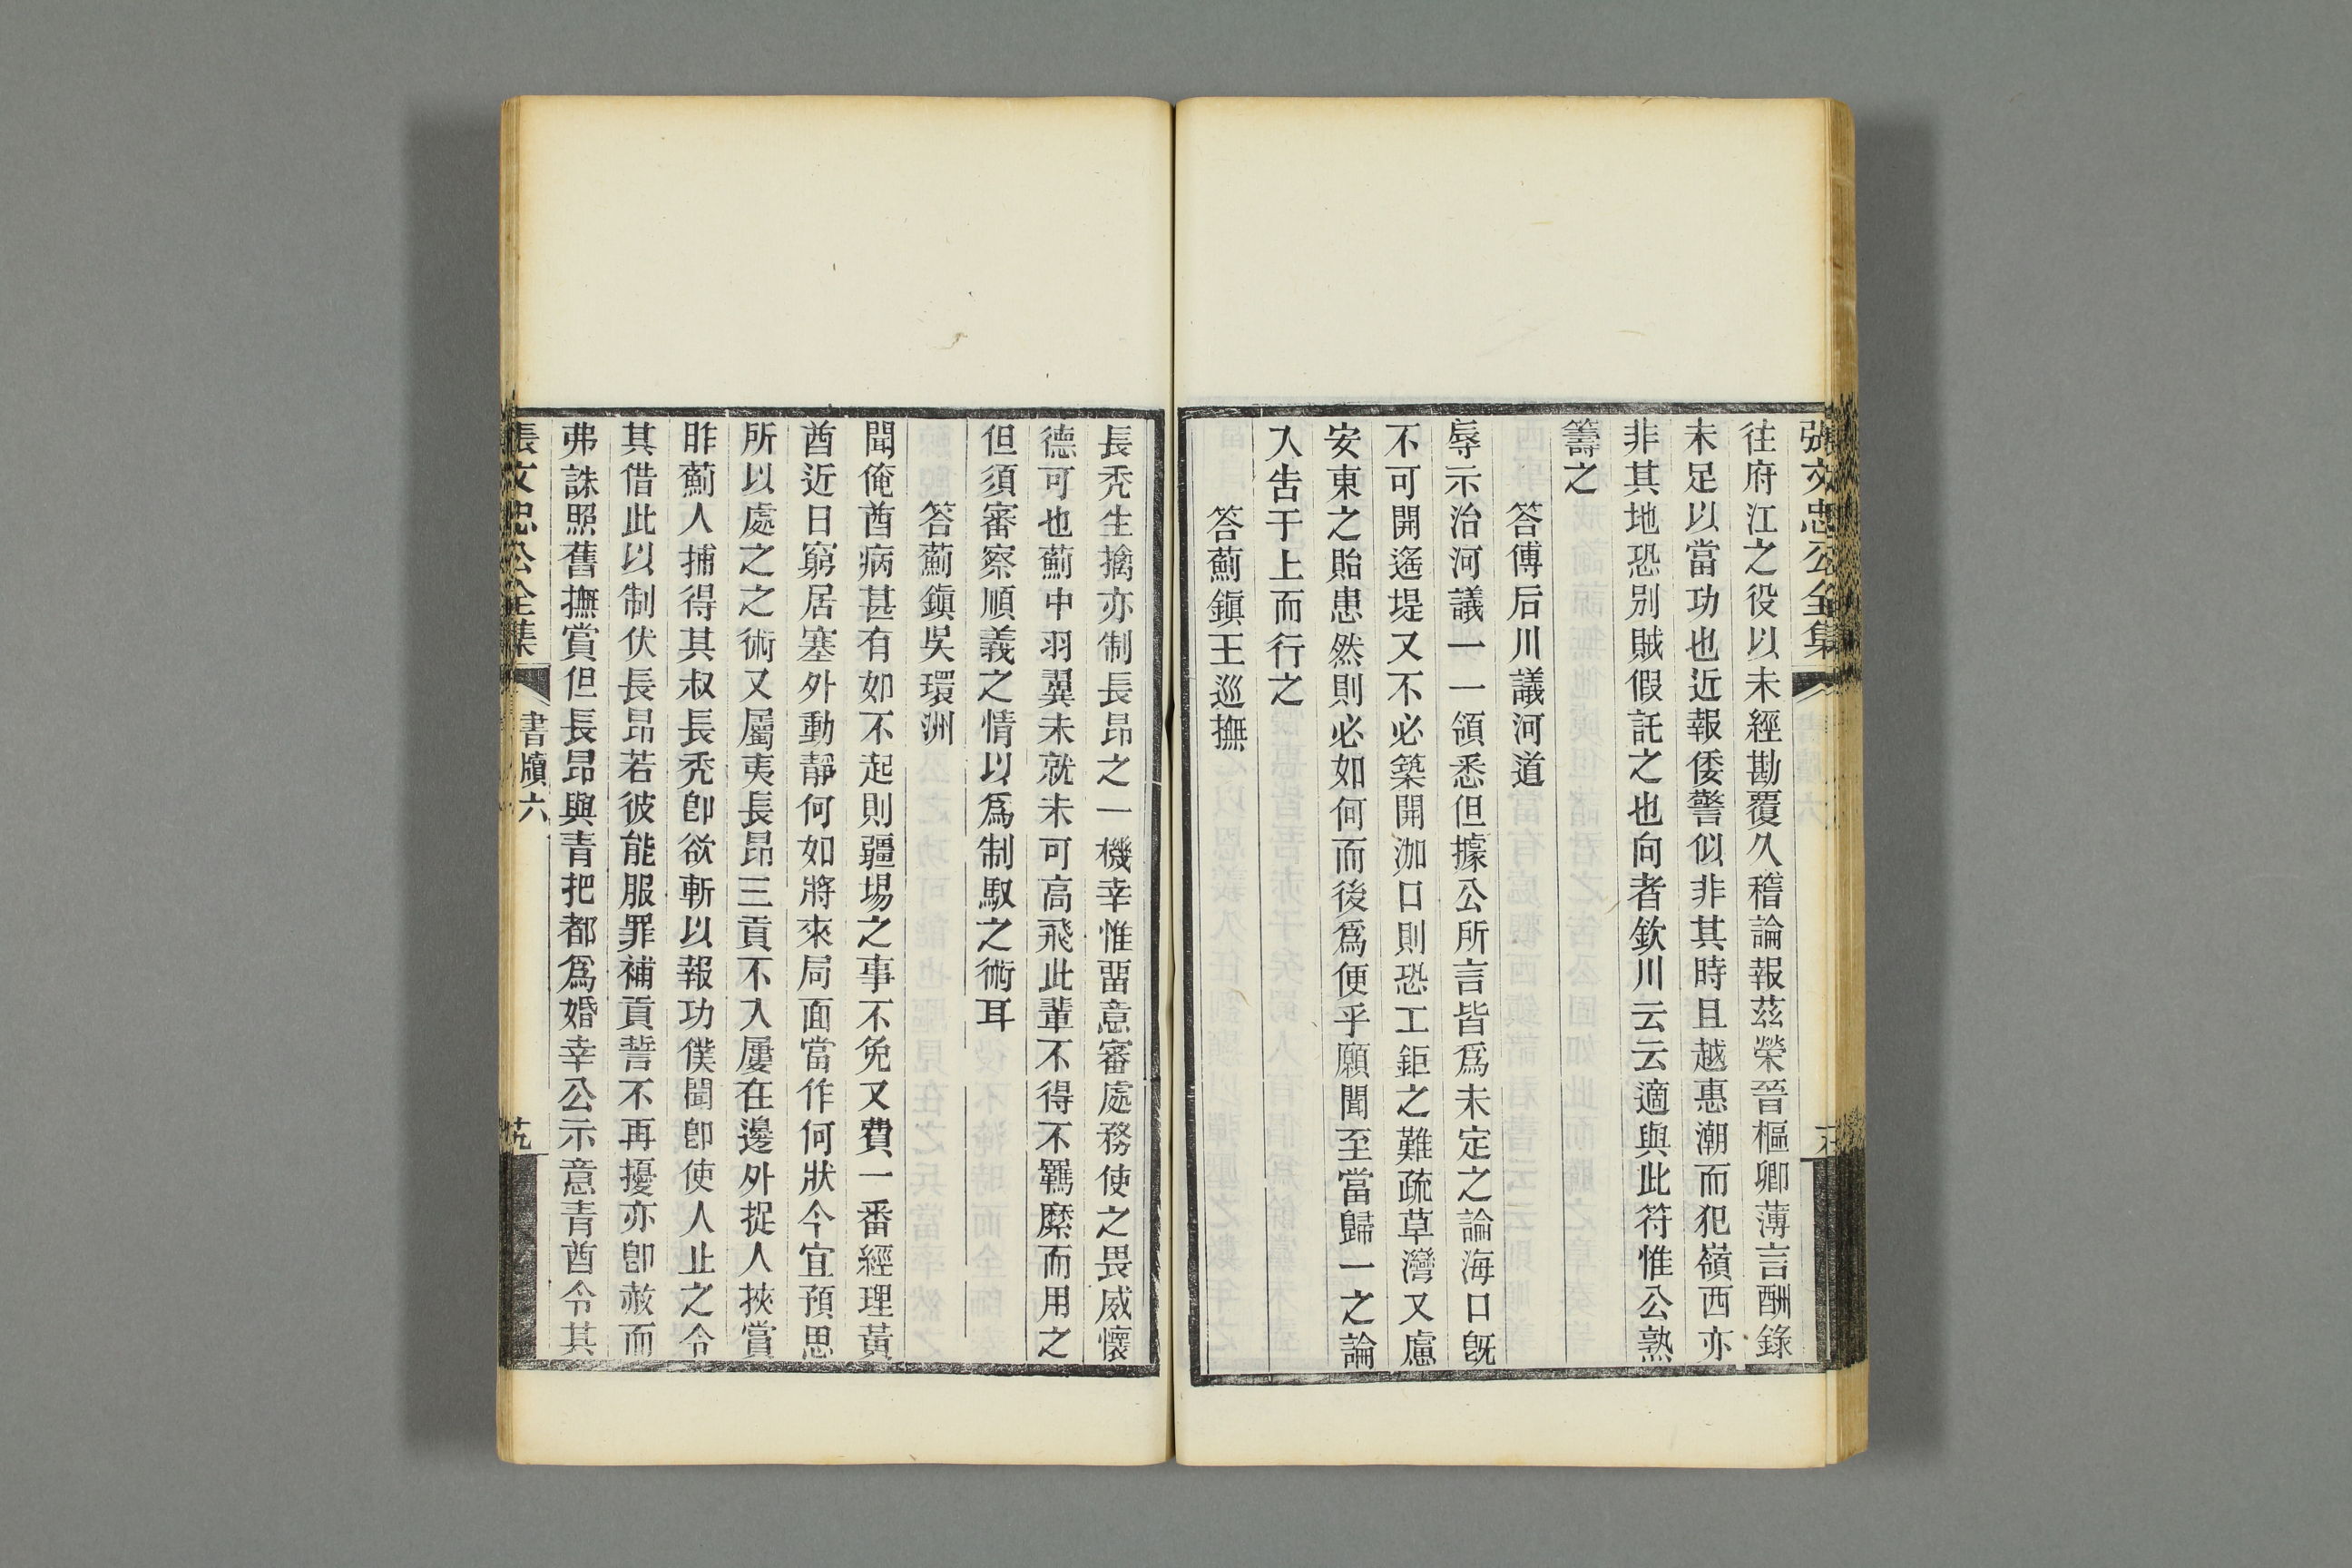 張文忠公全集
往府江之役以未經勘覆久稽論報茲榮晉樞卿薄言酬錄
未足以當功也近報倭警似非其時且越惠潮而犯嶺西亦
非其地恐別賊假託之也向者欽川云云適與此符惟公熟
籌之
答傅后川議河道
辱示治河議一一領悉但據公所言皆爲未定之論海口旣
不可開遙堤又不必築開泇口則恐工鉅之難疏草灣又慮
安東之貽患然則必如何而後爲便乎願聞至當歸一之論
入告于上而行之
答薊鎭王巡撫
長禿生擒亦制長昂之一機幸惟畱意審處務使之畏威懷
德可也薊中羽翼未就未可高飛此輩不得不羈縻而用之
但須審察順義之情以爲制馭之術耳
答薊鎭吳環洲
聞俺酋病甚有如不起則疆場之事不免又費一番經理黃
酋近日窮居塞外動靜何如將來局面當作何狀今宜預思
所以處之之術又屬夷長昂三貢不入屢在邊外捉人挾賞
昨薊人捕得其叔長禿卽欲斬以報功僕聞卽使人止之令
其借此以制伏長昂若彼能服罪補貢誓不再擾亦卽赦而
弗誅照舊撫賞但長昂與青把都爲婚幸公示意青酋令其
張文忠公全集 書牘六